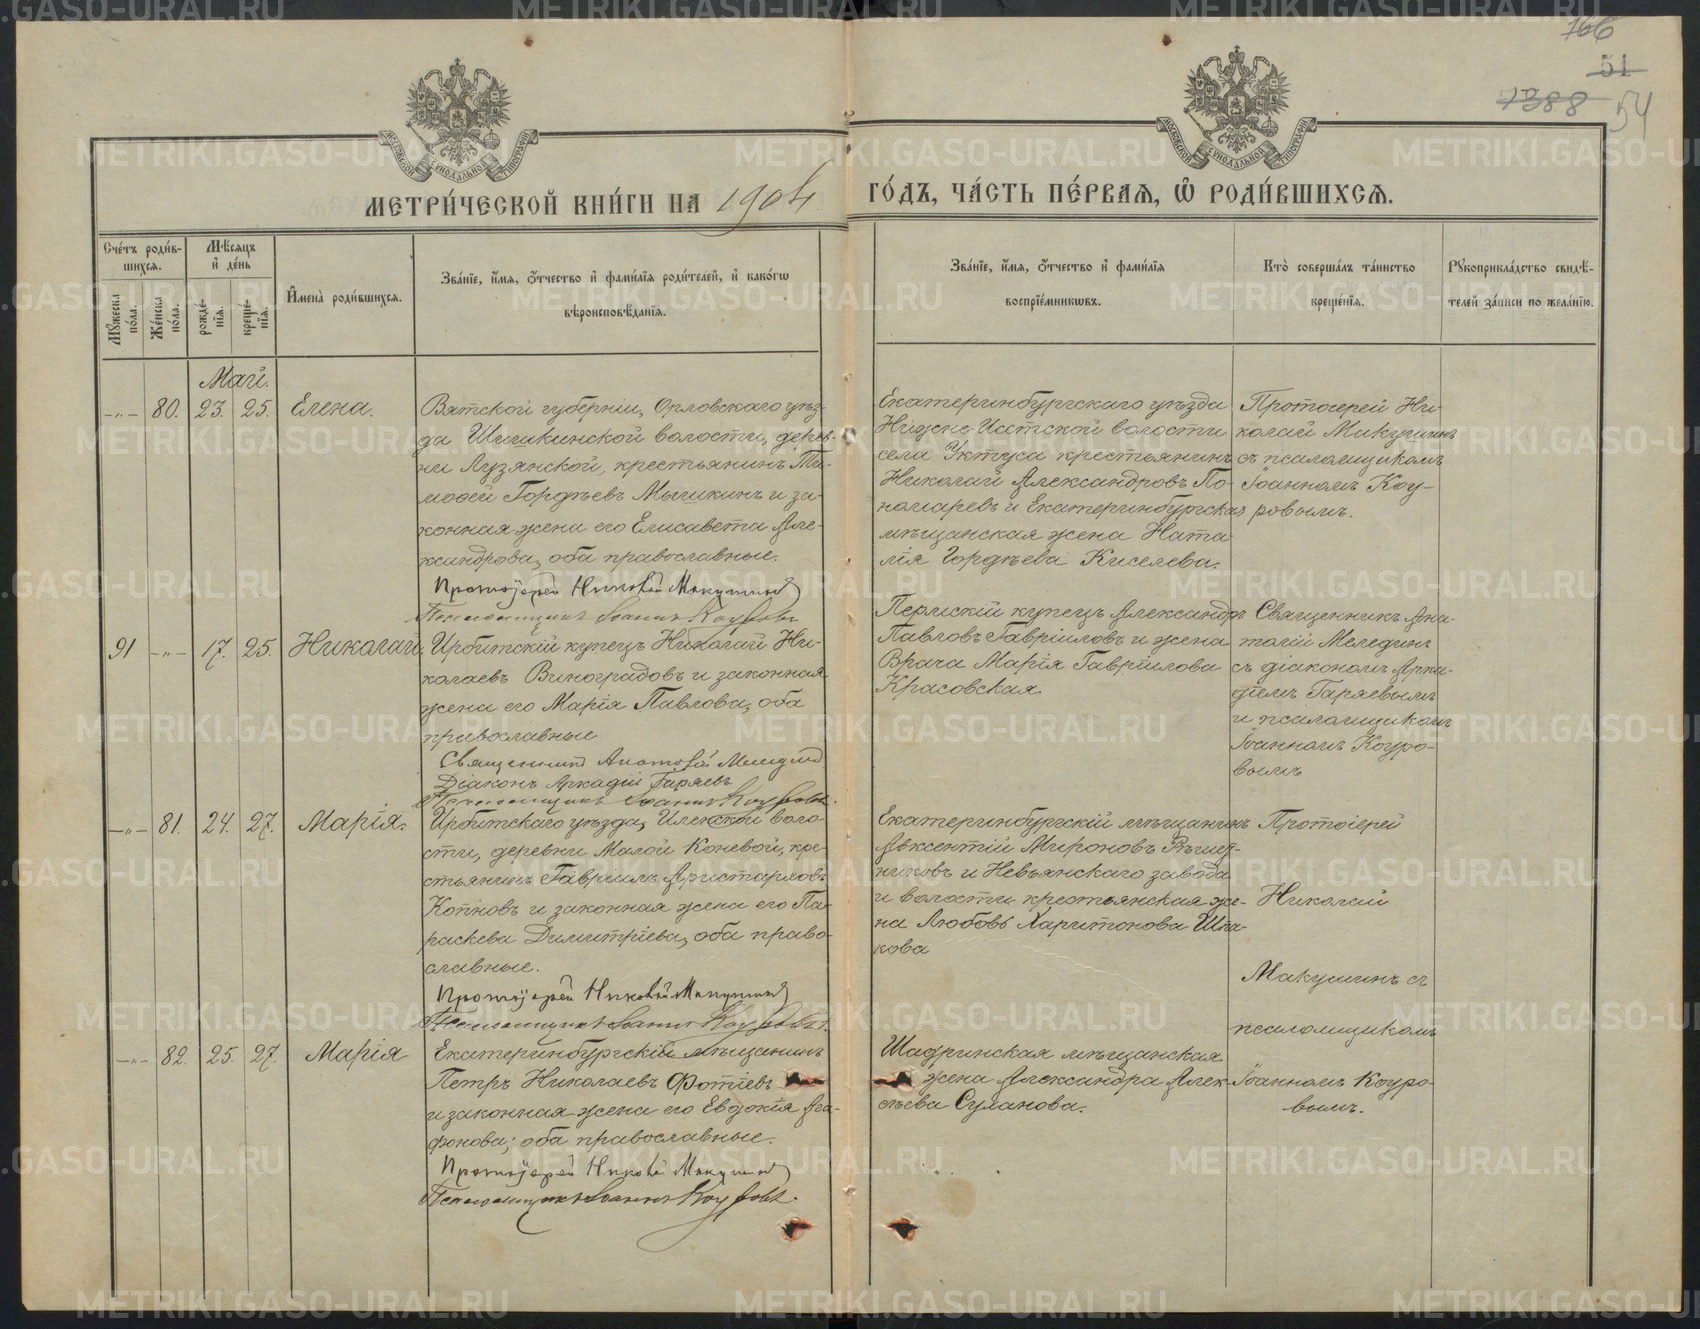 166
51
1388
54
МОСКОВСКОЙ СѴНОДАЛЬНОЙ ТИПОГРАФІИ
МОСКОВСКОЙ СѴНОДАЛЬНОЙ ТИПОГРАФІИ
МЕТРИ́ЧЕСКОЙ КНИ́ГИ НА 1904
ГО́ДЪ, ЧА́СТЬ ПЕ́РВАѦ, Ѡ҆ РОДИ́ВШИХСѦ.
Сче́тъ роди́в-
шихсѧ.
Мꙋ́жеска по́ла.
Же́нска по́ла.
Мѣ́сѧцъ
и҆ де́нь
рожде́-
нїѧ.
креще́-
нїѧ.
И҆мена̀ роди́вшихсѧ.
Зва́нїе, и҆́мѧ, ѻ҆́тчество и҆ фами́лїѧ роди́телей, и҆ како́гѡ
вѣроисповѣ́данїѧ.
Зва́нїе, и҆́мѧ, ѻ҆́тчество и҆ фами́лїѧ
воспрїе́мникѡвъ.
Кто̀ соверша́лъ та́инство
креще́нїѧ.
Рꙋкоприкла́дство свидѣ́-
телей за́писи по жела́нїю.
Май.
-"- 80. 23. 25. Елена.
Вятской губерніи, Орловскаго уѣз-
да Шишкинской волости, дерев-
ни Лузянской, крестьянинъ Ти-
моѳей Гордѣевъ Мышкинъ и за-
конная жена его Елисавета Але-
ксандрова, оба православные.
Протоіерей Николай Макушинъ
Псаломщикъ Іоаннъ Коуровъ
Екатеринбургскаго уѣзда
Нижне-Исетской волости
села Уктуса крестьянинъ
Николай Александровъ По-
номаревъ и Екатеринбургская
мѣщанская жена Ната-
лія Гордѣева Киселева.
Протоіерей Ни-
колай Макушинъ
съ псаломщикомъ
Іоанномъ Коу-
ровымъ.
91 -"- 17. 25. Николай.
Ирбитскій купецъ Николай Ни-
колаевъ Виноградовъ и законная
жена его Марія Павлова, оба
православные
Священникъ Анатолій Меледин
Діаконъ Аркадій Гаряевъ
Псаломщикъ Іоаннъ Коуровъ.
Пермскій купецъ Александръ
Павловъ Гавриловъ и жена
Врача Марія Гаврилова
Красовская.
Священникъ Ана-
толій Мелединъ
съ діакономъ Арка-
діемъ Гаряевымъ
и псаломщикомъ
Іоанномъ Коуро-
вымъ
-"- 81. 24. 27. Марія.
Ирбитскаго уѣзда, Иленской воло-
сти, деревни Малой Коневой, кре-
стьянинъ Гавриилъ Аристарховъ
Копновъ и законная жена его Па-
раскева Димитріева, оба право-
славные.
Протоіерей Николай Макушинъ
Псаломщикъ Іоаннъ Коуровъ.
Екатеринбургскій мѣщанинъ
Авксентій Мироновъ Рѣшет-
никовъ и Невьянскаго завода
и волости крестьянская же-
на Любовь Харитонова Шта-
кова
Протоіерей
Николай
Макушинъ съ
псаломщикомъ
Іоанномъ Коуро-
вымъ.
-"- 82. 25. 27. Марія
Екатеринбургскій мѣщанинъ
Петръ Николаевъ Фотіевъ
и законная жена его Евдокія Ага-
фонова; оба православные.
Протоіерей Николай Макушинъ
Псаломщикъ Іоаннъ Коуровъ.
Шадринская мѣщанская
жена Александра Алек-
сѣева Суханова.